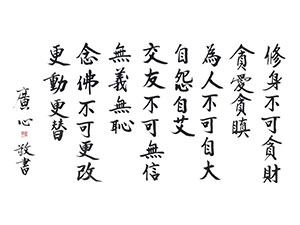 修身不可貪財
貪愛貪瞋
為人不可自大
自怨自艾
交友不可無信
無義無恥
念佛不可更改
更動更替
廣心敬書